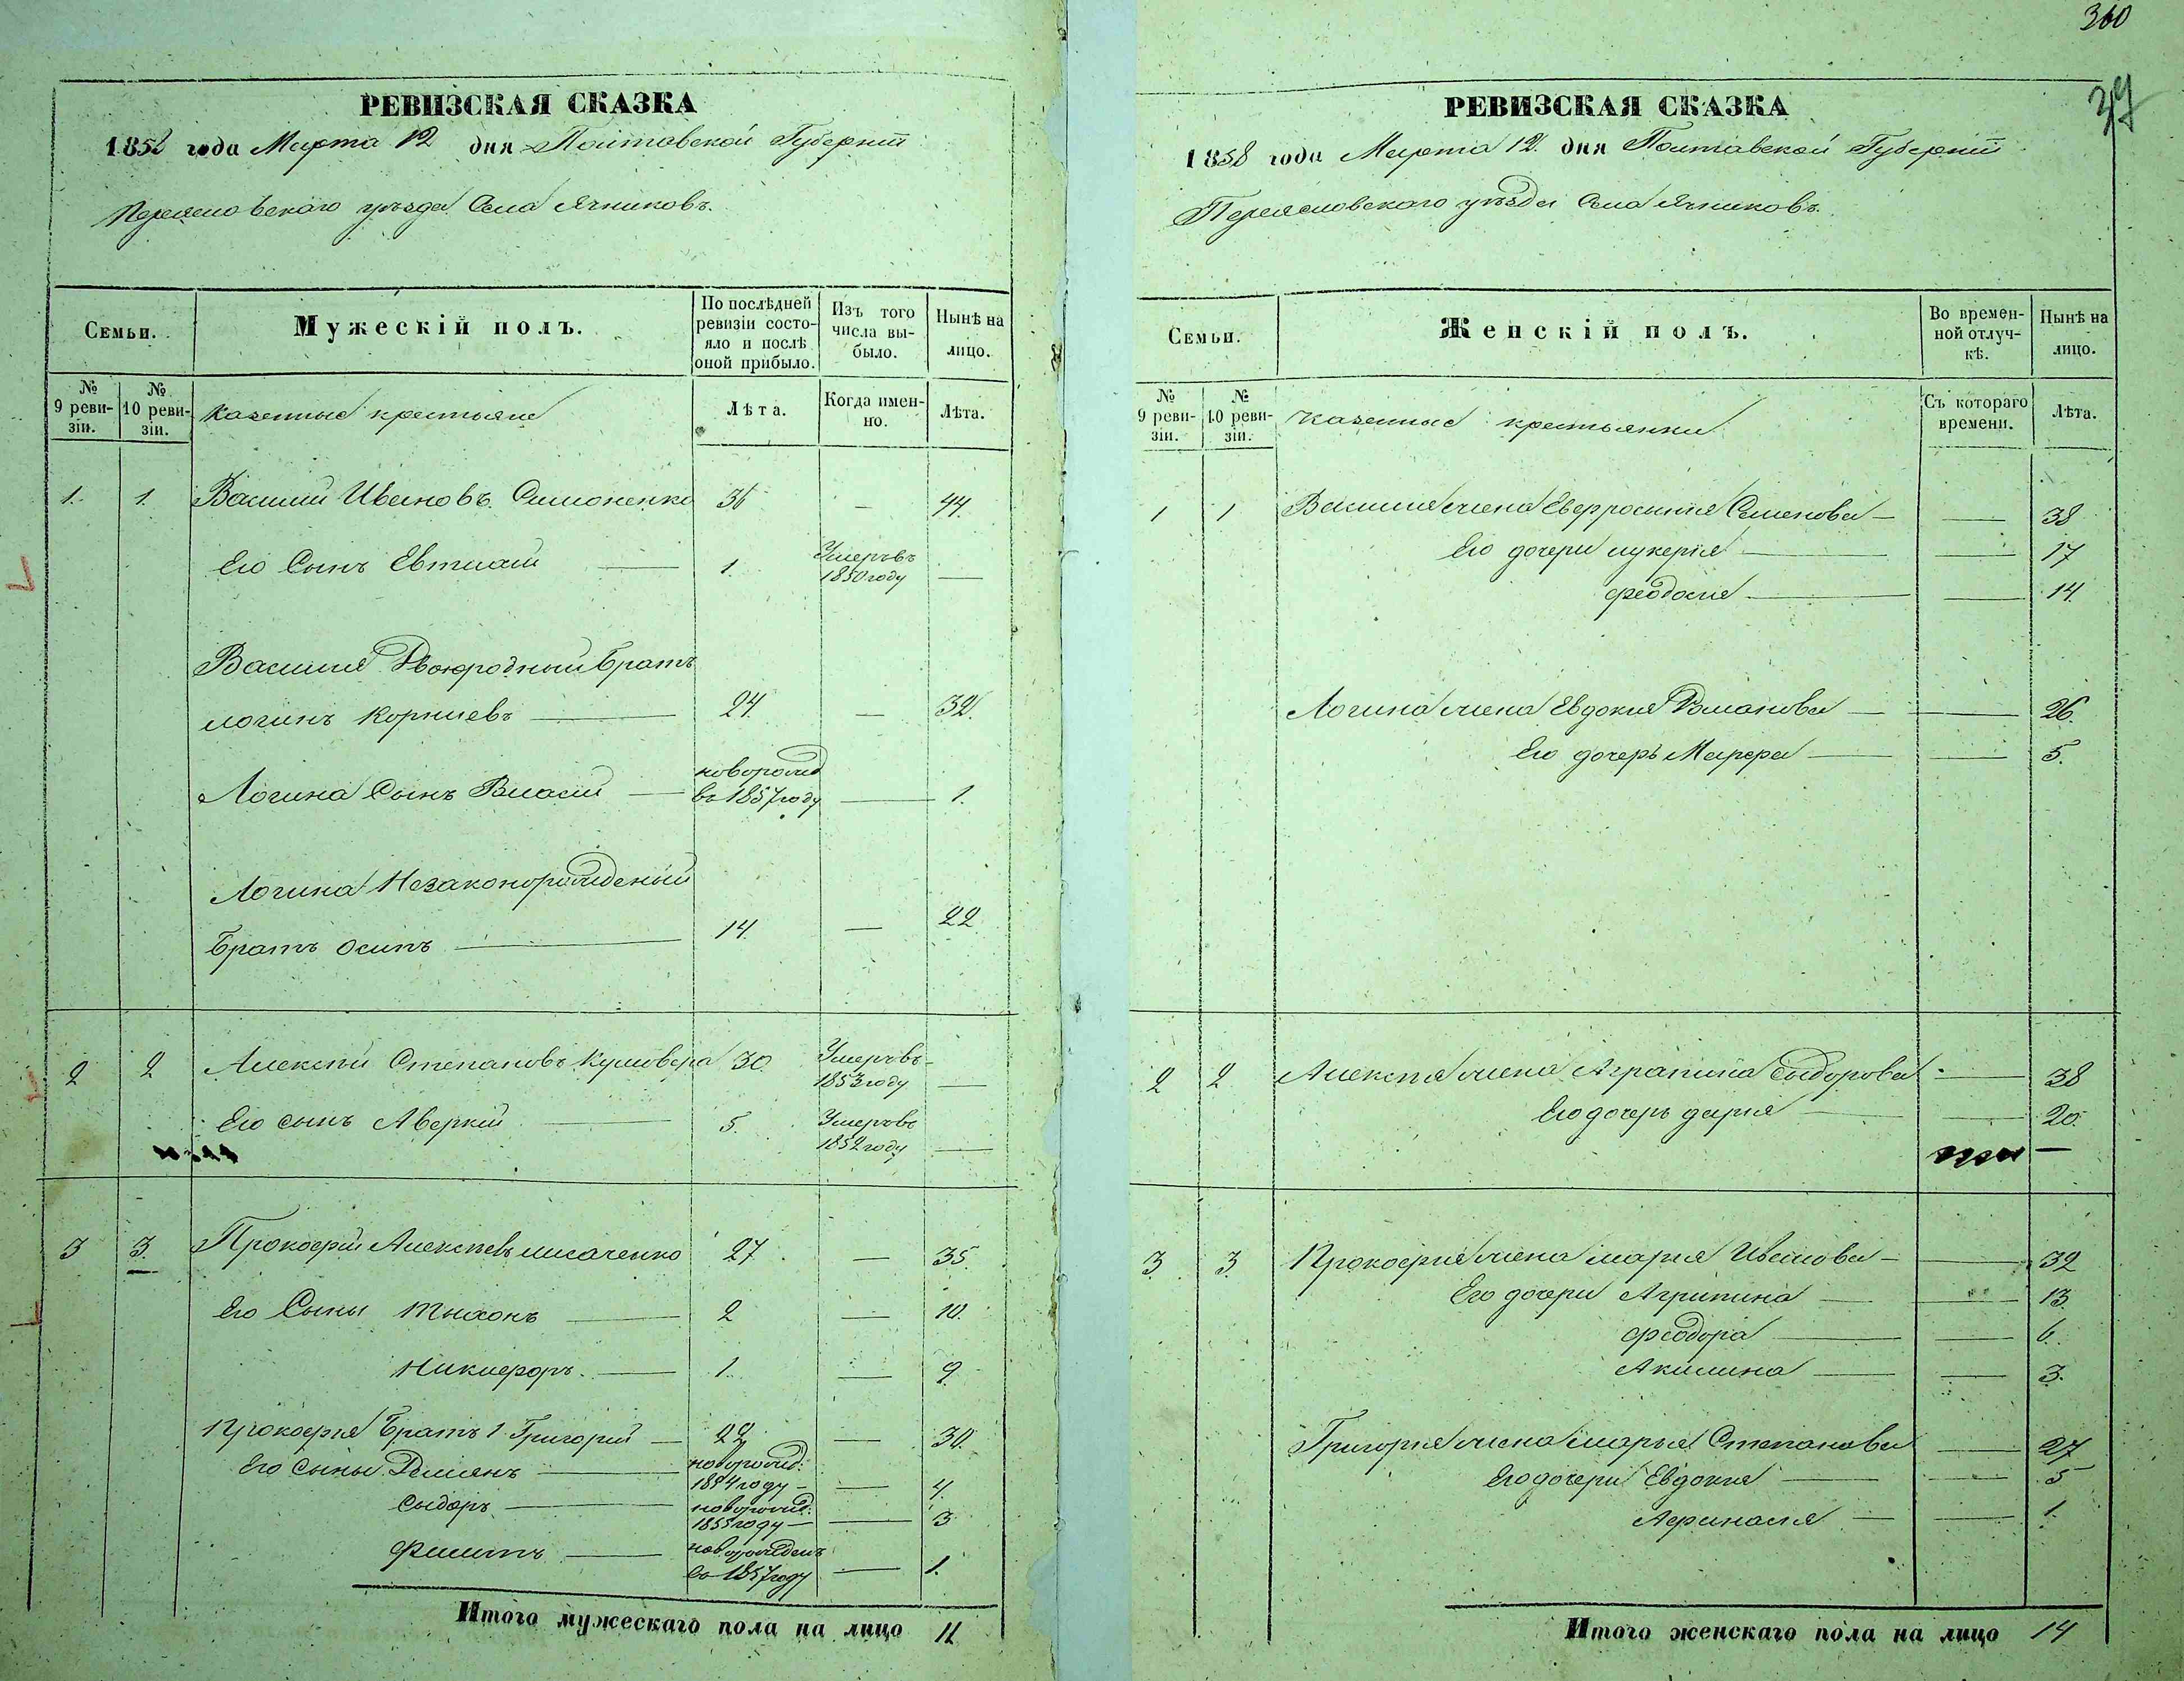 360
37
РЕВИЗСКАЯ СКАЗКА
1858 года Марта 12 дня Полтавской Губерніи
Переяславского уѣзда Села Ячниковъ.
Семьи.
Мужескій полъ.
По послѣдней ревизіи состо-
яло и послѣ
оной прибыло.
Изъ того
числа вы-
было.
Нынѣ на
лицо.
№
9 реви-
зіи.
№
10 реви-
зіи.
Казенные крестьяне
Лѣта.
Когда имен-
но.
Лѣта.
1. 1. Василий Ивановъ Симоненко 36 — 44.
Его Сынъ Евтихий — 1. Умеръ въ
1850 году —
Василия Двоюродный братъ
логинъ Корниевъ — 24. — 32.
Логина Сынъ Власий — новорожд
въ 1857 году — 1.
Логина Незаконорожденый
братъ осипъ — 14. — 22
2 2 Алексѣй Степановъ 30 Умеръ въ
1853 году —
Его сынъ Аверкий — 5. Умеръ въ
1852 году —
3 3. Прокофий Алексѣевъ 27 — 35.
Его Сыны Тыхонъ — 2 — 10.
Никифоръ. — 1. — 9.
Прокофия братъ 1. Григорий — 22 — 30.
Его Сыны Демьянъ — новорожд:
1854 году — — 4.
Сыдоръ — новорожд:
1855 году — — 3
Филипъ — новорожденъ
въ 1857 году — 1.
Итого мужескаго пола на лицо 11
РЕВИЗСКАЯ СКАЗКА
1858 года Марта 12. дня Полтавской Губерніи
Переяславского уѣзда Села Ячниковъ.
Семьи.
Женскій полъ.
Во времен-
ной отлуч-
кѣ.
Нынѣ на
лицо.
№
9 реви-
зіи.
№
10 реви-
зіи.
Казенные крестьянки
Съ котораго
времени.
Лѣта.
1 1 Василия жена Евфросиния Семенова — — 38
Его дочери лукерія — — 17
феодосия — — 14.
Логина жена Евдокия Романова — — 26.
Его дочерь Марфа — — 5.
2 2 Алексѣя жена Агрипина Сыдорова — 38
Его дочерь дария — — 20.
3. 3. Прокофия жена мария Иванова — — 32
Его дочери Агрипина — — 13.
феодора — — 6.
Акилина — — 3.
Григория жена марья Степанова — 27
Его дочери Евдокия — — 5
Афанасия — — 1.
Итого женскаго пола на лицо 14